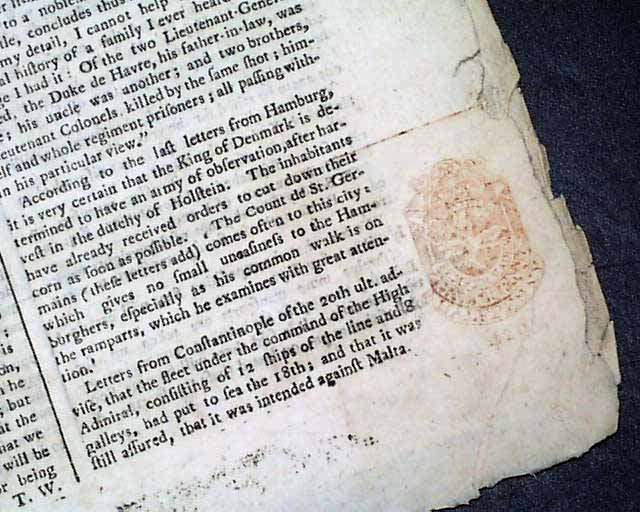 to a noble
tle, concludes thus
my detail, I cannot help
al history of a family I ever hea
ge I had it: Of the two Lieutenant-Gener
ed, the Duke de Havre, his father-in-law, was
e; his uncle was another; and two brothers,
eutenant Colonels, killed by the ſame ſhot; him-
elf and whole regiment priſoners; all paſſing with-
in his particular view."
According to the laſt letters from Hamburg,
it is very certain that the King of Denmark is de-
termined to have an army of obſervation, after har-
veſt in the dutchy of Holſtein. The inhabitants
have already received orders to cut down their
corn as ſoon as poſſible. The Count de St. Ger-
mains (theſe letters add) comes often to this city:
which gives no ſmall uneaſineſs to the Ham-
burghers, eſpecially as his common walk is on
the ramparts, which he examines with great atten-
tion.'
Letters from Conſtantinople of the 20th ult. ad-
viſe, that the fleet under the command of the High
Admiral, conſiſting of 12 ſhips of the line and
galleys, had put to ſea the 18th; and that it was
ſtill aſſured, that it was intended againſt Malta.
is
on,
n he
; but
at the
that we
will be
or being
T. W.